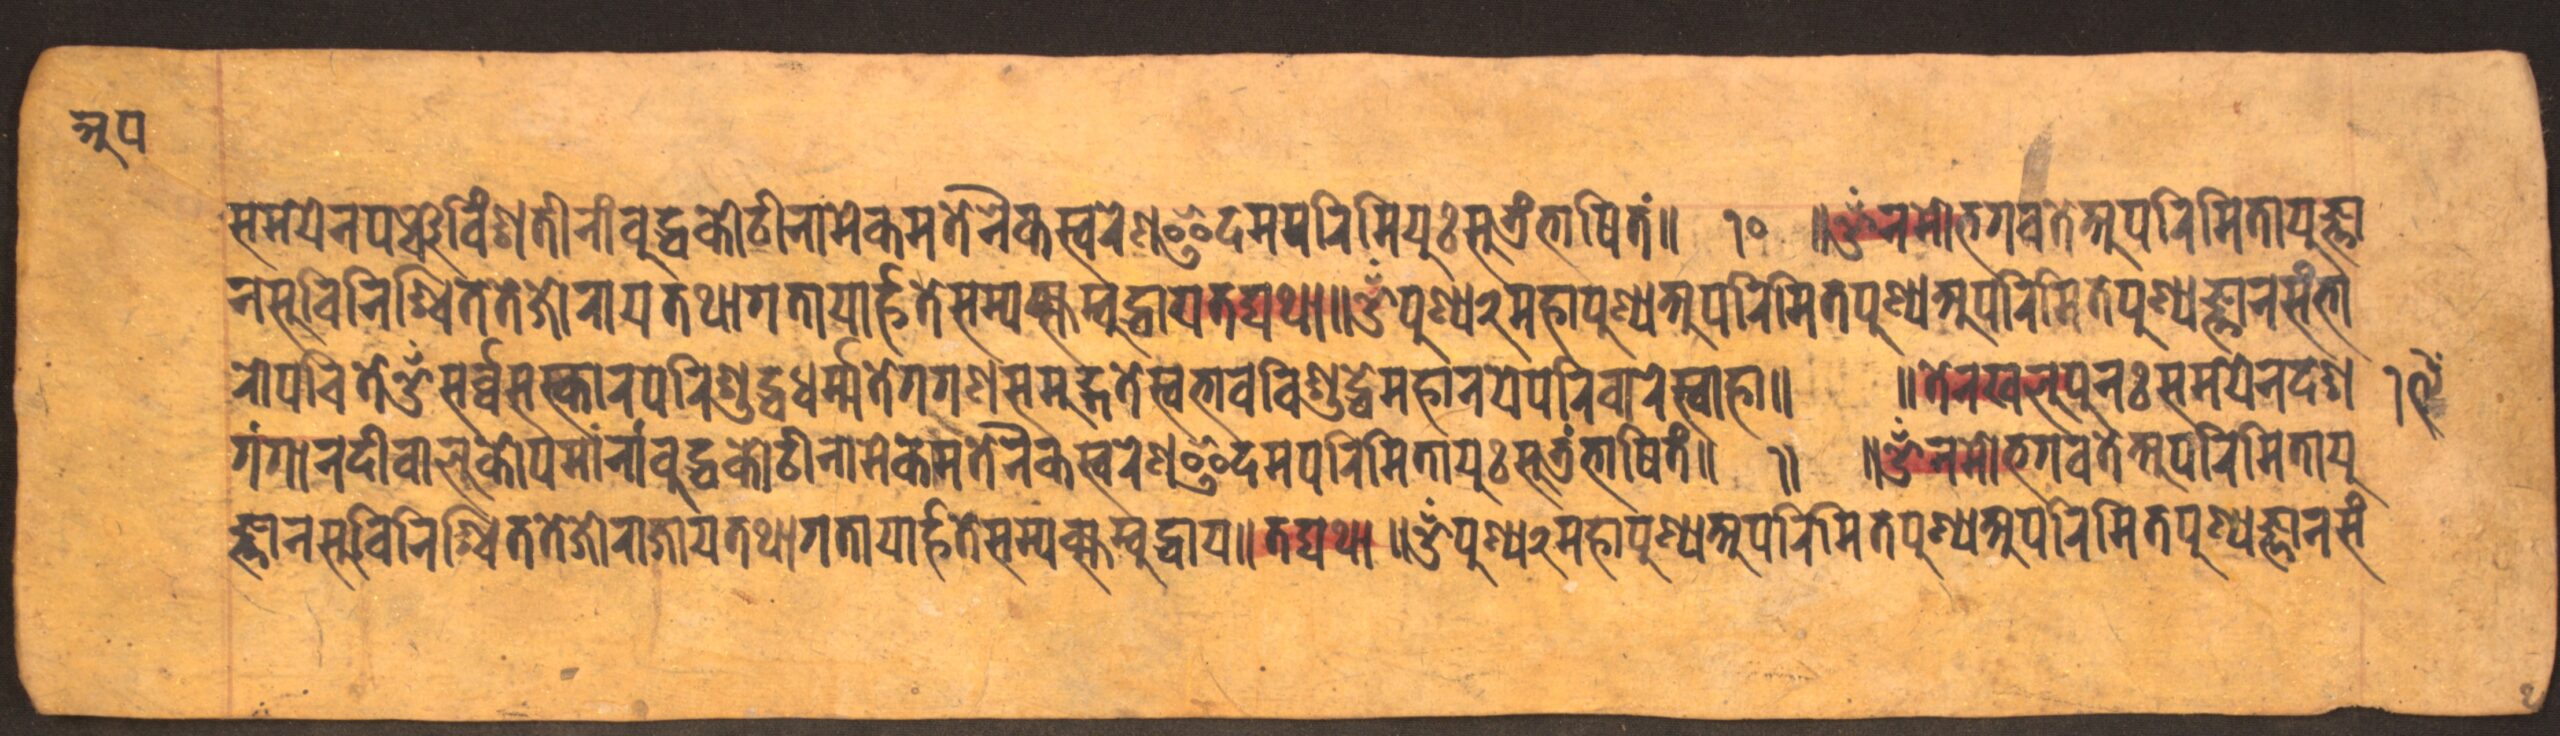 अप
समयेनपञ्चविंशतीनांबुद्धकोटीनामेकमतेनैकस्वरेणइदमपरिमियुःसुत्रंभाषितं॥ १० ॥ॐनमोभगवतेअपरिमितायुज्ञा
नसुविनिश्चिततेजोरायतथागतायार्हतेसम्यक्सम्बुद्धायतद्यथा॥ॐपुण्य२महापुण्यअपरिमितपुण्यअपरिमितेपुण्यज्ञानसंभा
रोपचितेॐसर्व्वसस्कारपरिशुद्धधर्म्मतेगगणसमुद्गतेस्वभावविशुद्धेमहानयेपरिवारेस्वाहा॥ ॥तेनखलुपुनःसमयेनदश
गंगानदीवालुकोपमांनांबुद्धकोटीनामेकमतेनैकस्वरेणइदमपरिमितायुःसुत्रंभाषितं॥ ॥ॐनमोभगवतेअपरिमितायु
ज्ञानसुविनिश्चिततेजोराजायतथागतायार्हतेसम्यक्सम्बुद्धाय॥तद्यथा॥ॐपुण्य२महापुण्यअपरिमितपुण्यअपरिमितपुण्यज्ञानसं